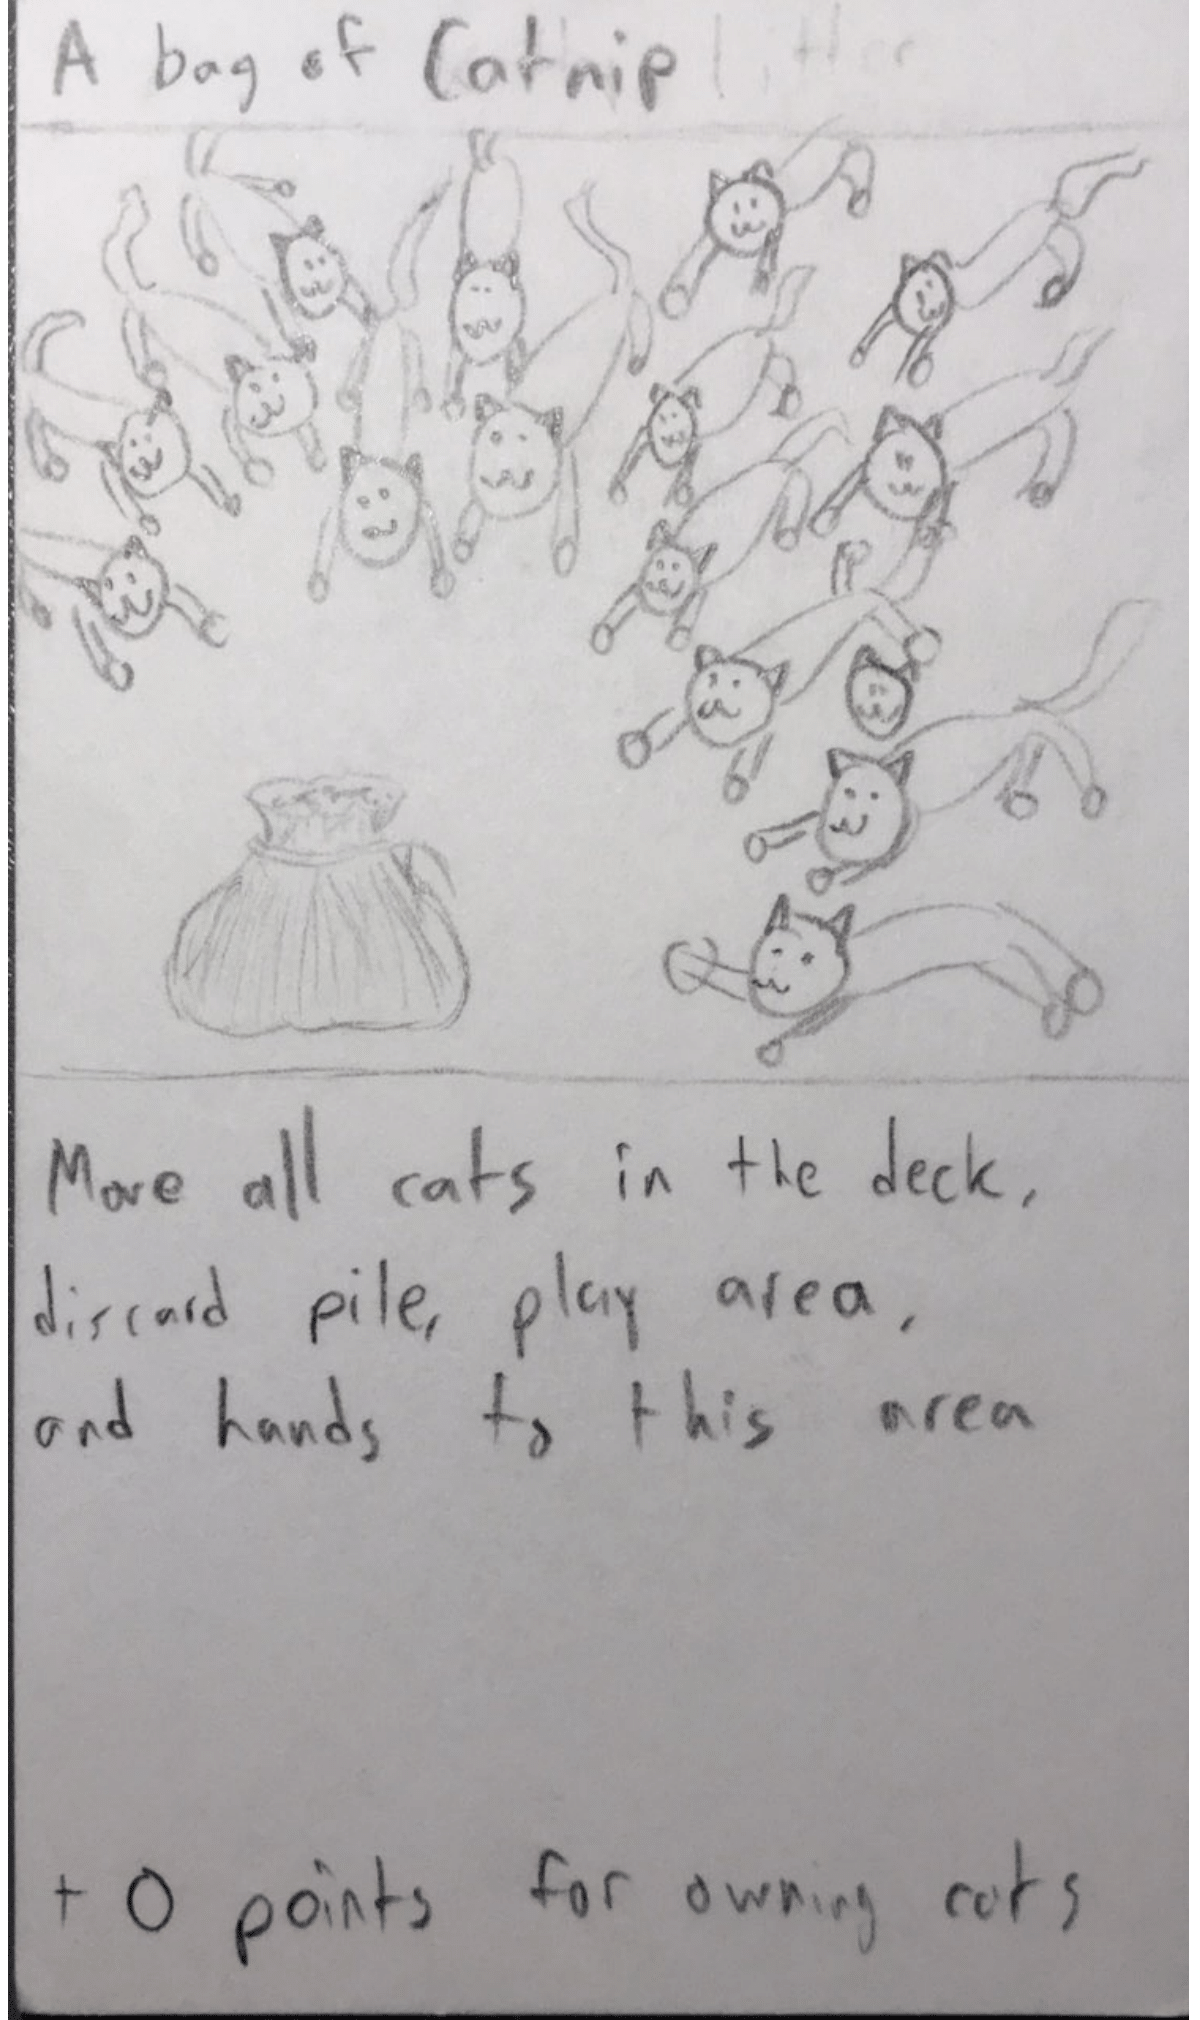 A bag of Catnip litter
Move all cats in the deck,
discard pile, play area,
and hands to this area
+0 points for owning cats